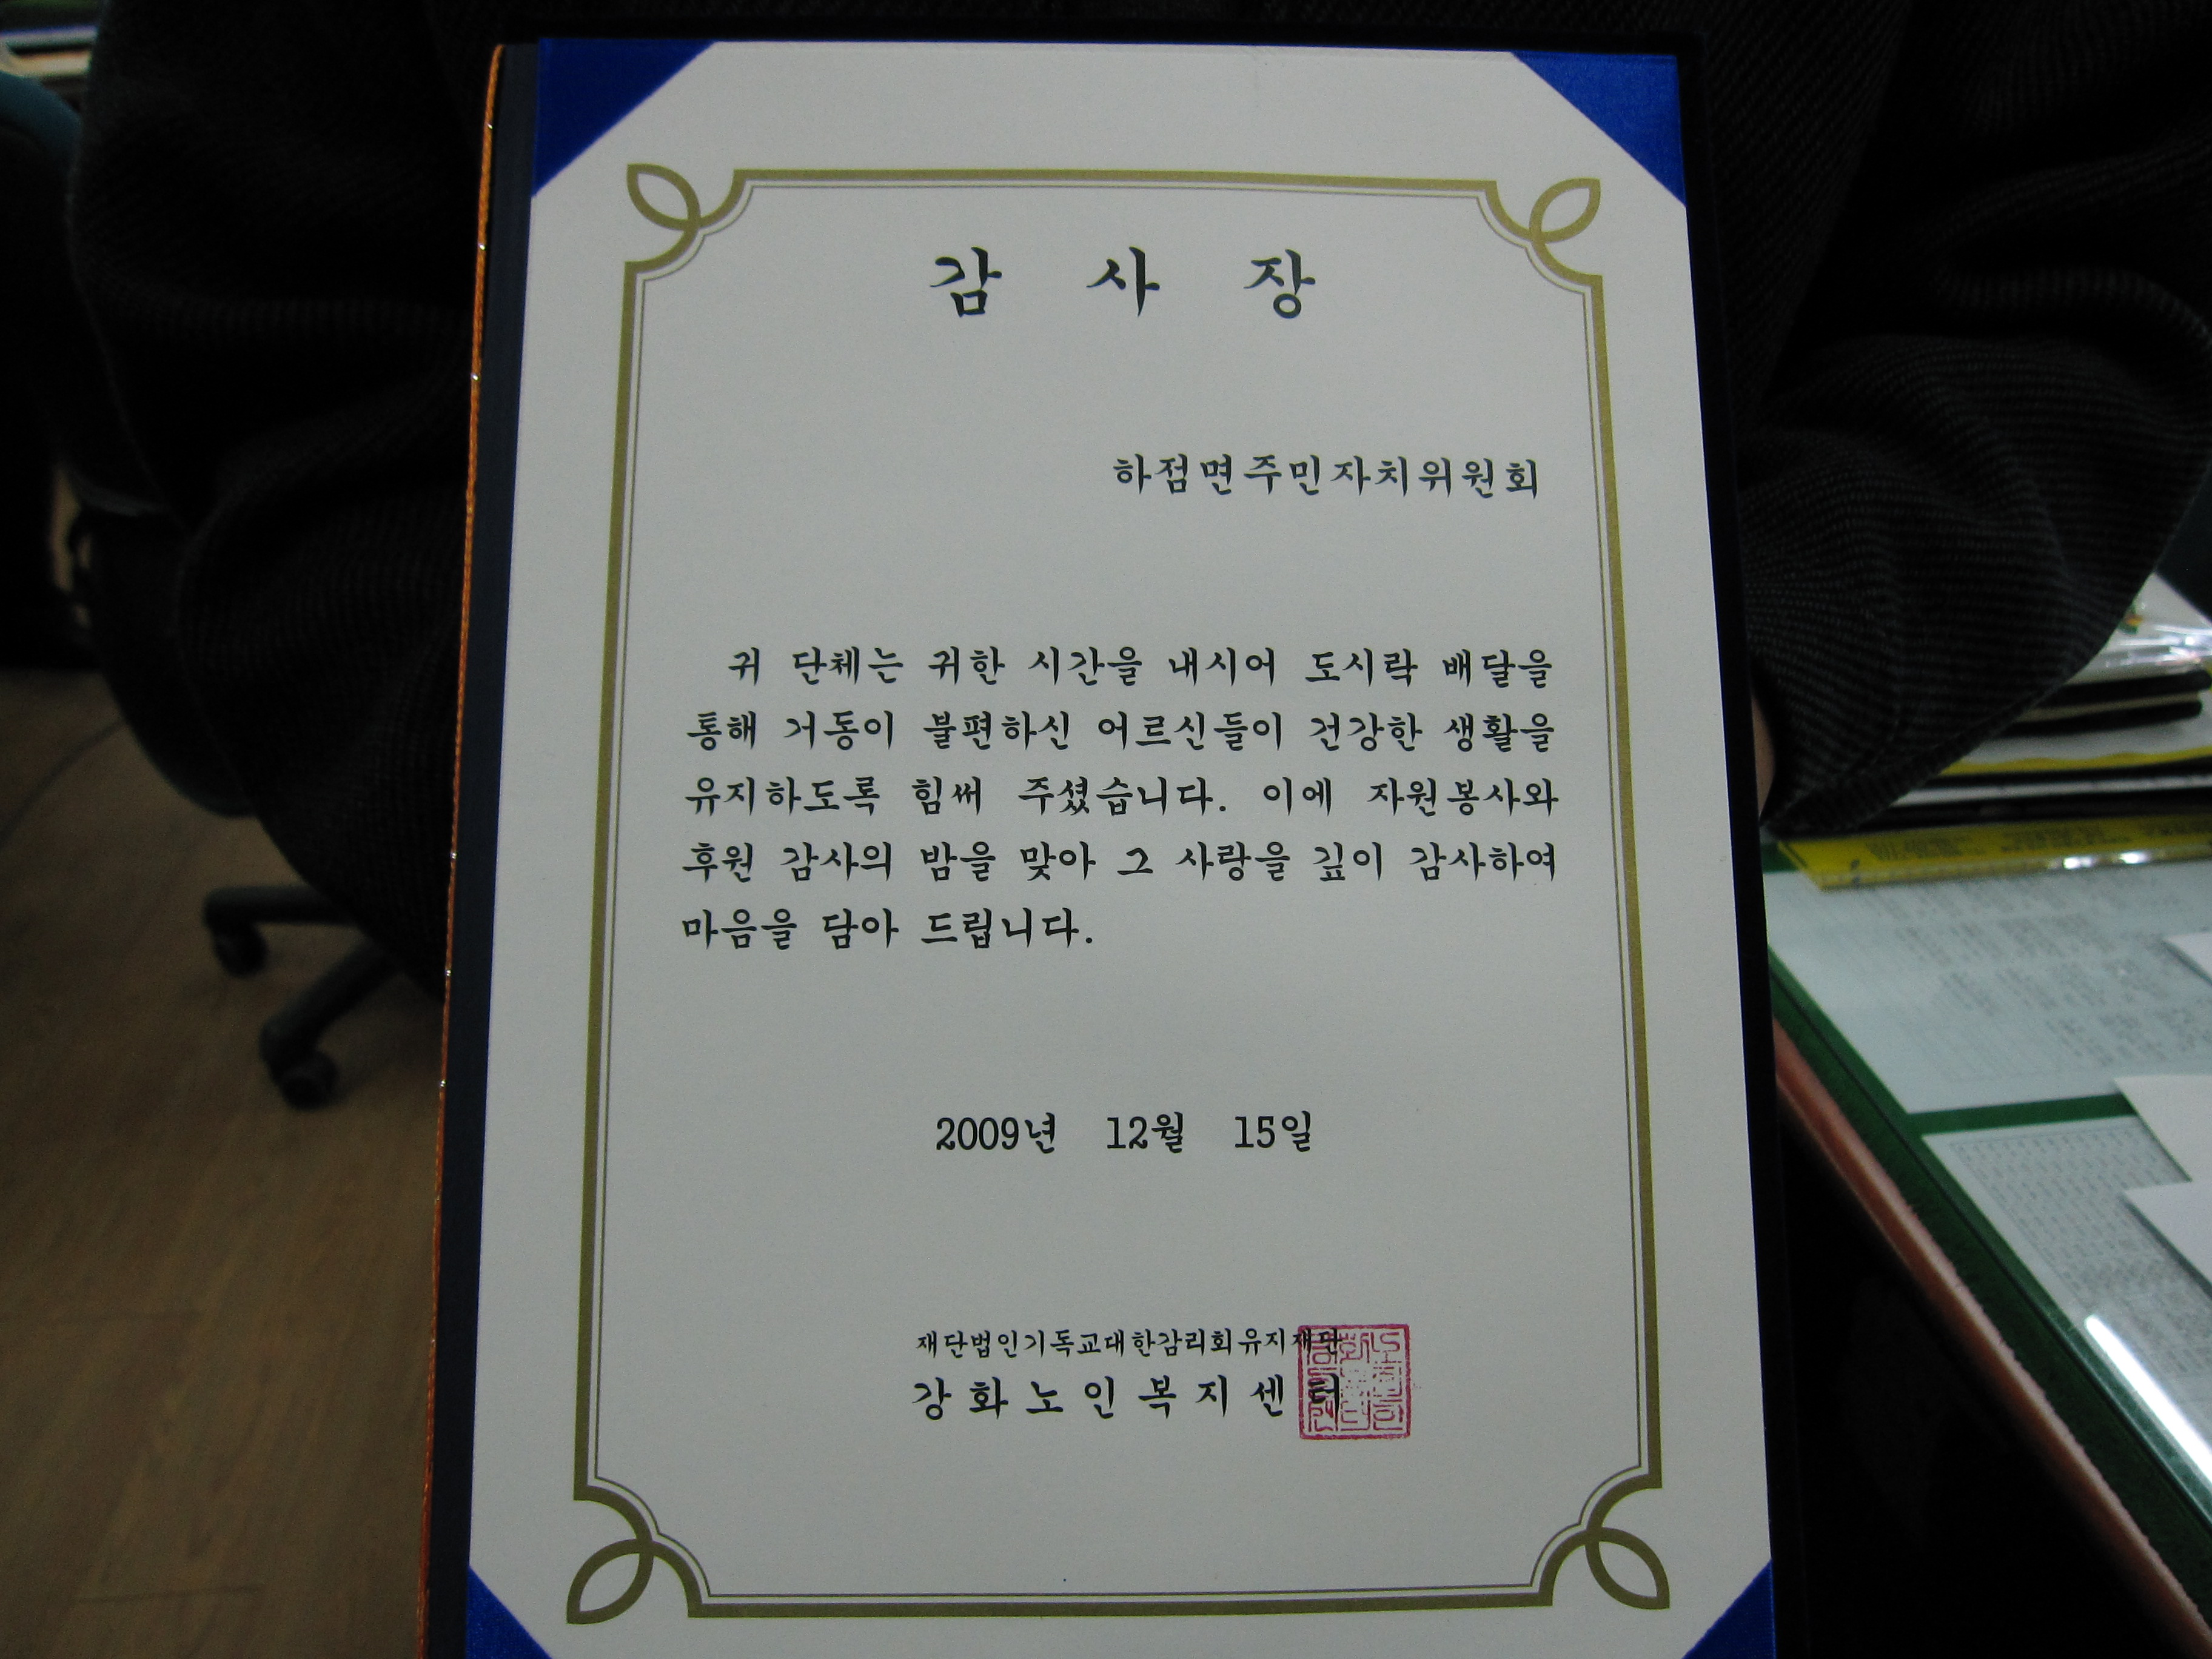 감 사 장
하점면주민자치위원회
귀 단체는 귀한 시간을 내시어 도시락 배달을
통해 거동이 불편하신 어르신들이 건강한 생활을
유지하도록 힘써 주셨습니다. 이에 자원봉사와
후원 감사의 밤을 맞아 그 사랑을 깊이 감사하여
마음을 담아 드립니다.
2009년 12월 15일
재단법인기독교대한감리회유지재단
강화노인복지센터